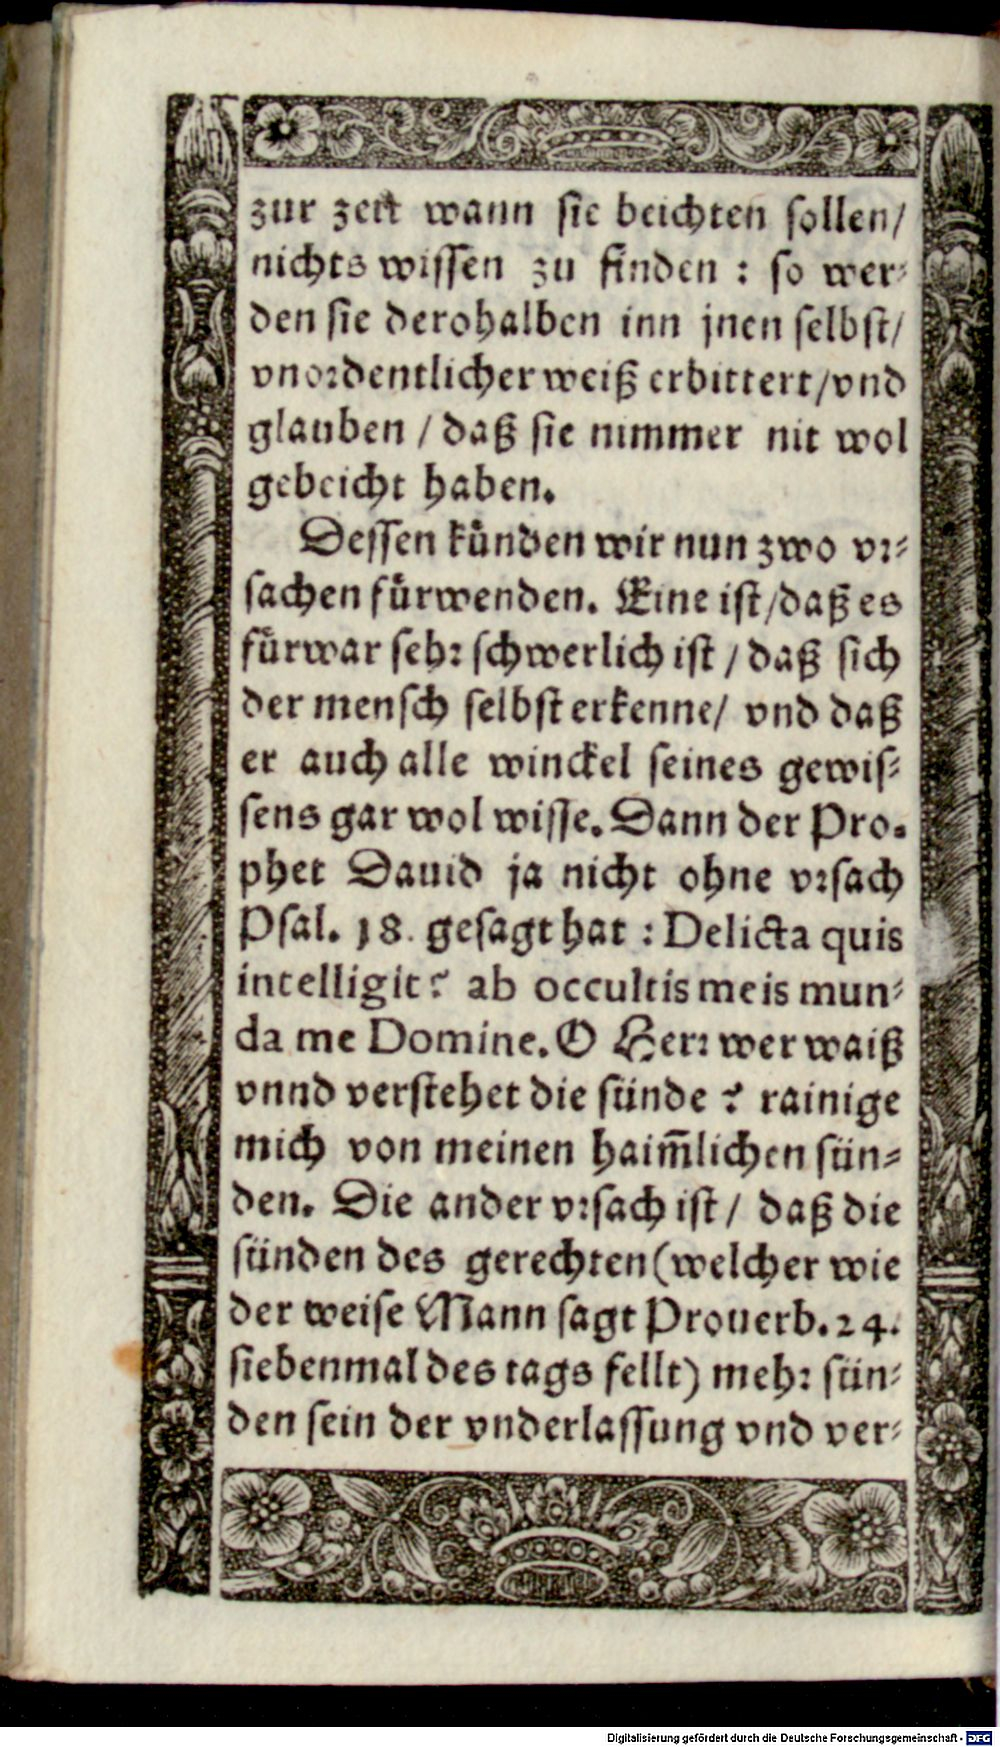 zur zeit wann sie beichten sollen/
nichts wissen zu finden : so wer-
den sie derohalben inn jnen selbst/
vnordentlicher weiß erbittert/vnd
glauben / daß sie nimmer nit wol
gebeicht haben.
Dessen kuͤnden wir nun zwo vr-
sachen fuͤrwenden. Eine ist/daß es
fuͤrwar sehr schwerlich ist / daß sich
der mensch selbst erkenne/ vnd daß
er auch alle winckel seines gewis-
sens gar wol wisse. Dann der Pro-
phet Dauid ja nicht ohne vrsach
Psal. 18. gesagt hat : Delicta quis
intelligit? ab occultis meis mun-
da me Domine. O Herr wer waiß
vnnd verstehet die sünde ? rainige
mich von meinen haim̃lichen sün-
den. Die ander vrsach ist / daß die
sünden des gerechten (welcher wie
der weise Mann sagt Prouerb. 24.
siebenmal des tags fellt) mehr sün-
den sein der vnderlassung vnd ver-
Digitalisierung gefördert durch die Deutsche Forschungsgemeinschaft - DFG